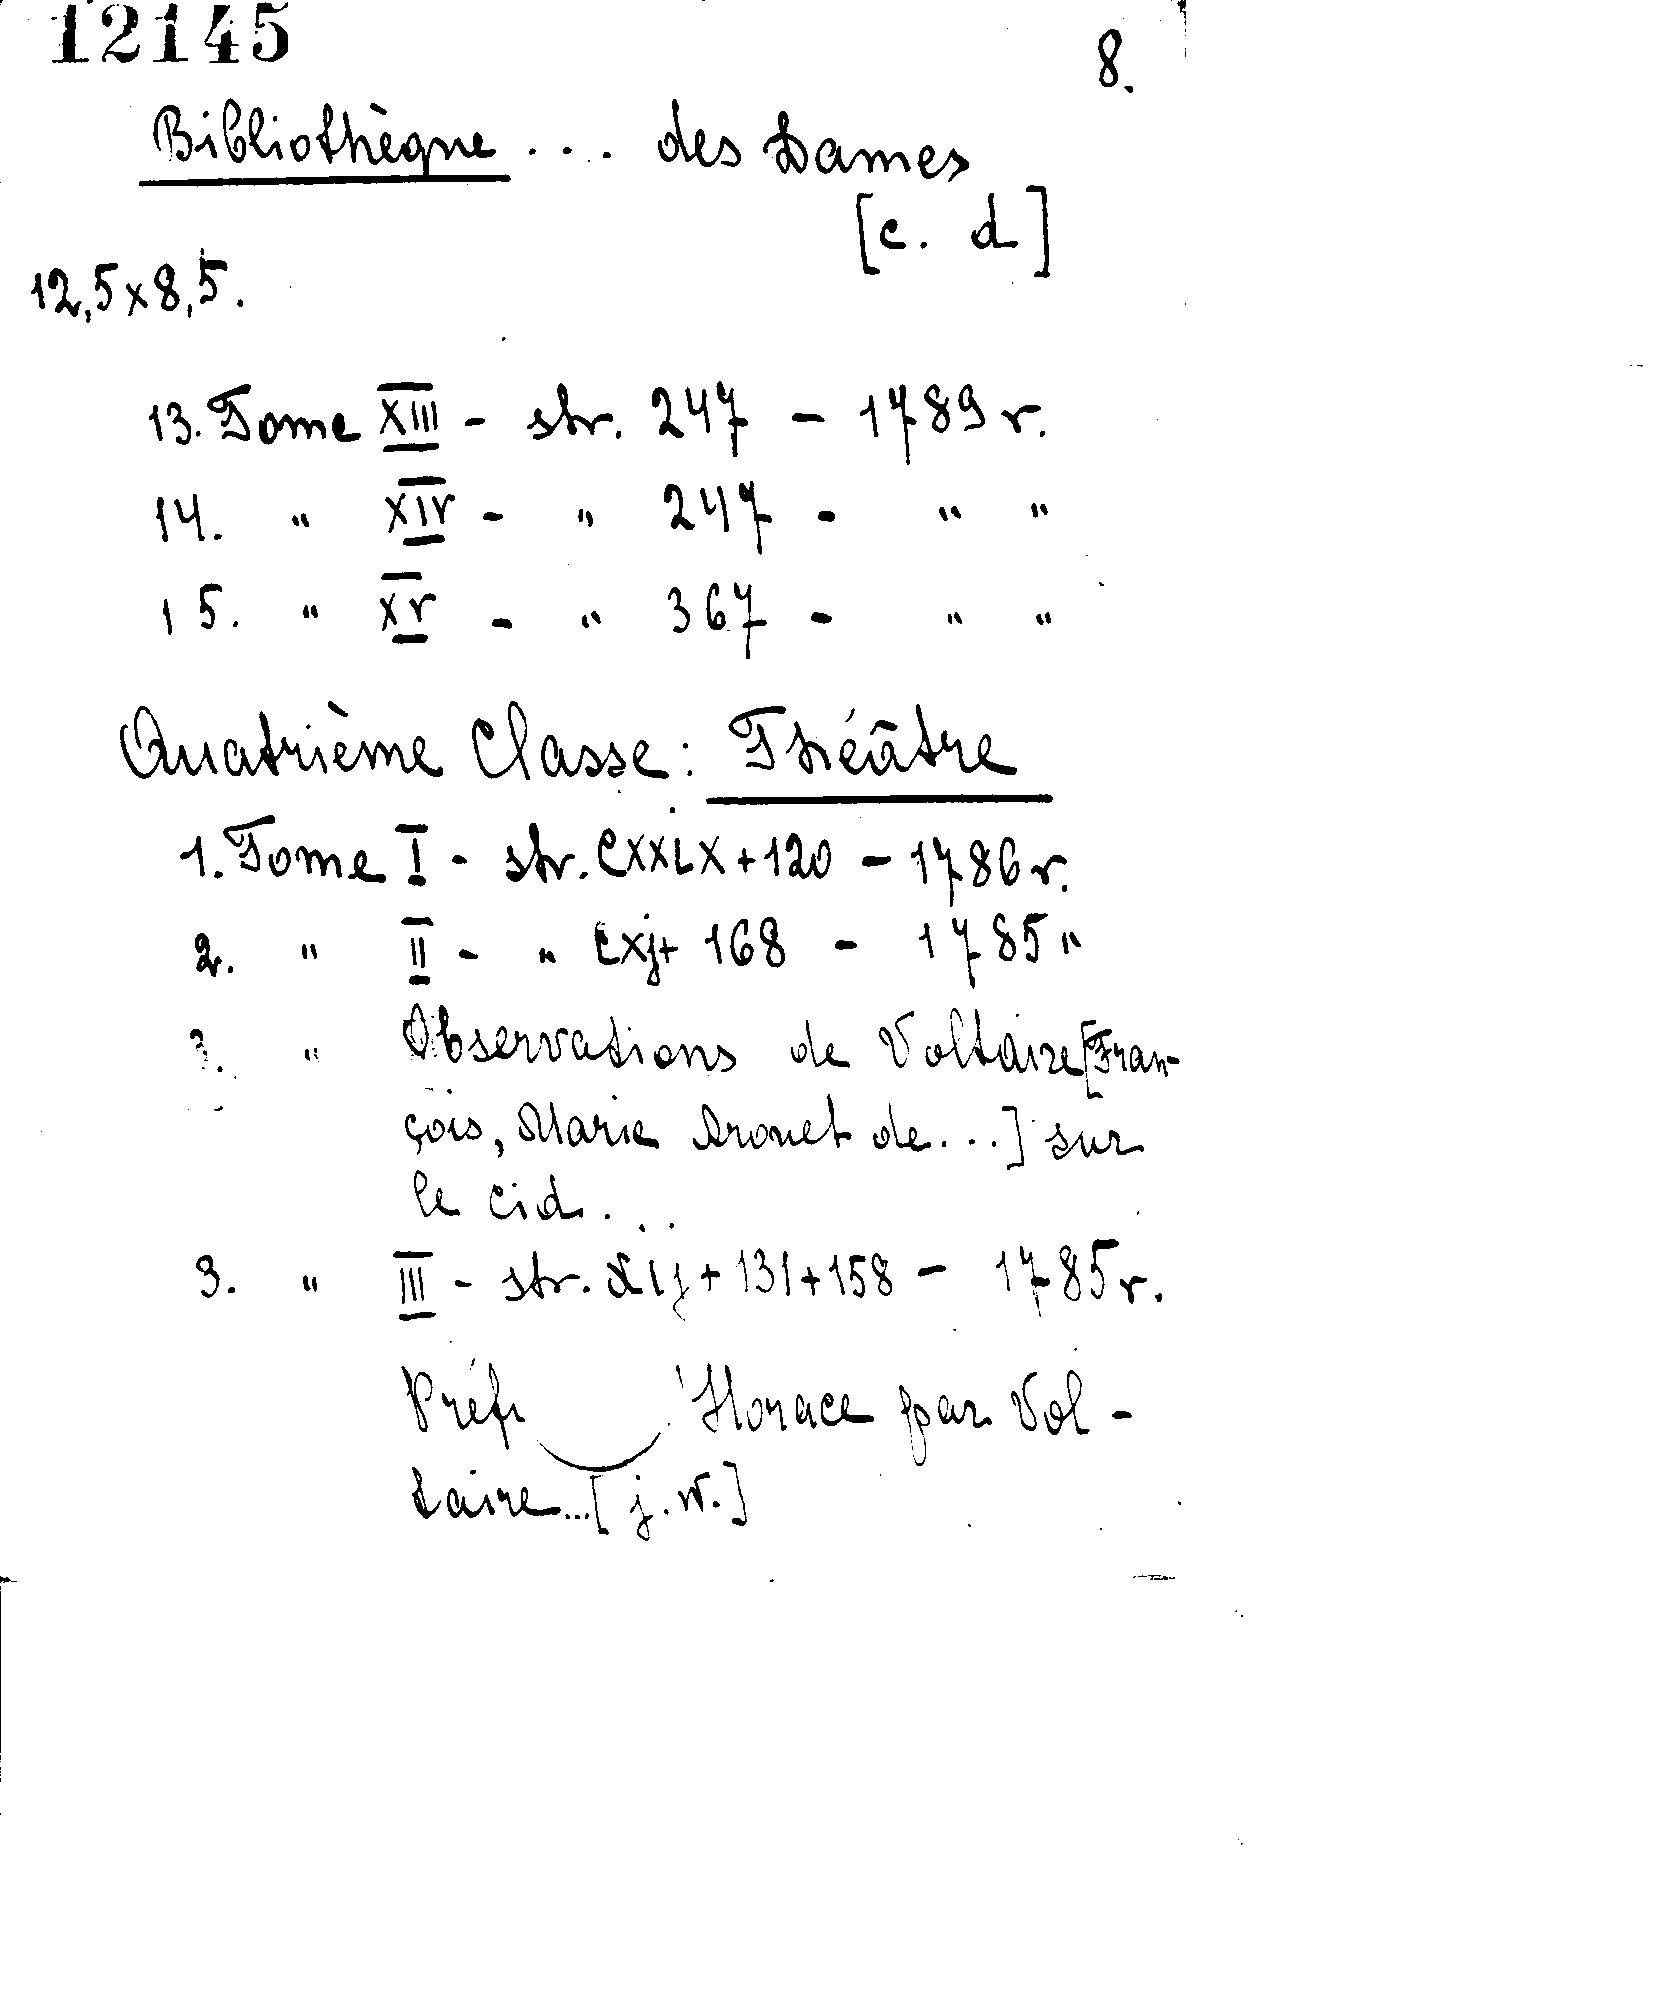 12145
8.
Bibliothèque ... des Dames
[c. d]
12,5x8,5.
13. Tome XIII - str. 247 - 1789 r.
14. " XIV - " 247 - " "
15. " XV - " 367 - " "
Quatrième Classe: Théâtre
1. Tome I - str. CXXLX+120 - 1786 r.
2. " II - " CXj+ 168 - 1785 "
3. " Observations de Voltaire [Fran-
çois, Marie Arouet de...] sur
le Cid...
3. " III - str. XIj + 131+158 - 1785 r.
Préf Horace par Vol-
taire...[j.w.]